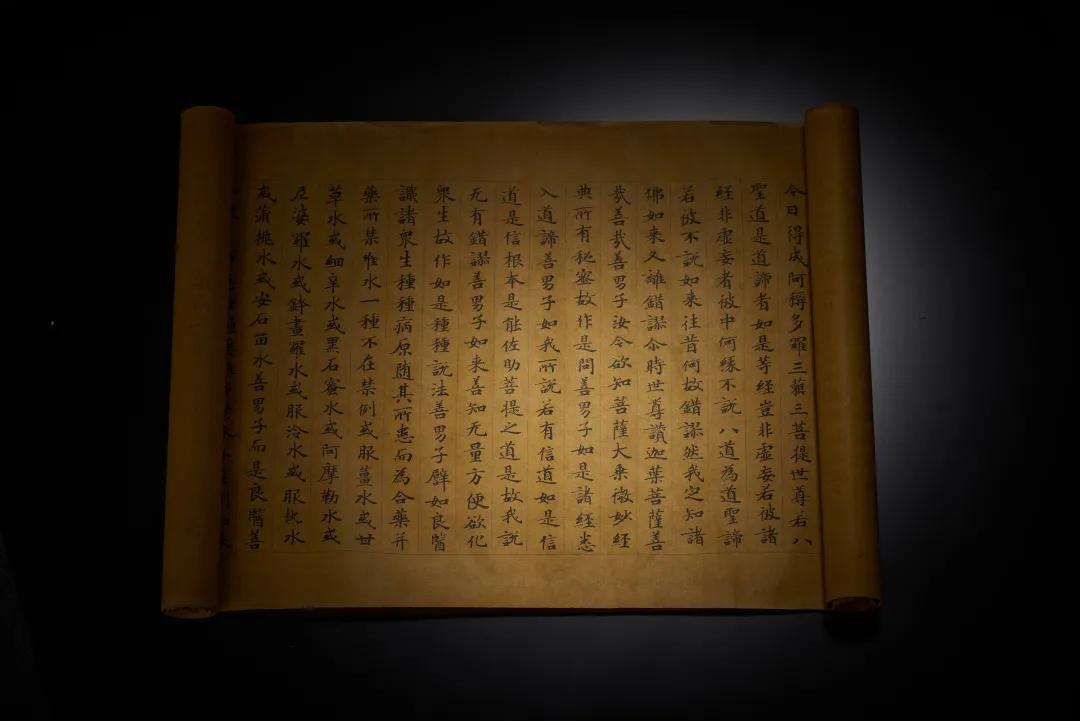 今日得成阿耨多羅三藐三菩提世尊若八
聖道是道諦者如是等經豈非虛妄若彼諸
經非虛妄者彼中何緣不說八道為道聖諦
若彼不說如來往昔何故錯謬然我定知諸
佛如來久離錯謬尒時世尊讃迦葉菩薩善
㢤善㢤善男子汝今欲知菩薩大乘微妙經
典所有秘密故作是問善男子如是諸經悉
入道諦善男子如我所說若有信道如是信
道是信根本是能佐助菩提之道是故我說
无有錯謬善男子如來善知无量方便欲化
衆生故作如是種種說法善男子譬如良醫
識諸衆生種種病原随其所患而為合藥并
藥所禁唯水一種不在禁例或服薑水或甘
草水或細辛水或黒石蜜水或阿摩勒水或
尼婆羅水或鉢晝羅水或服冷水或服熱水
或蒲桃水或安石𠰥水善男子而是良醫善